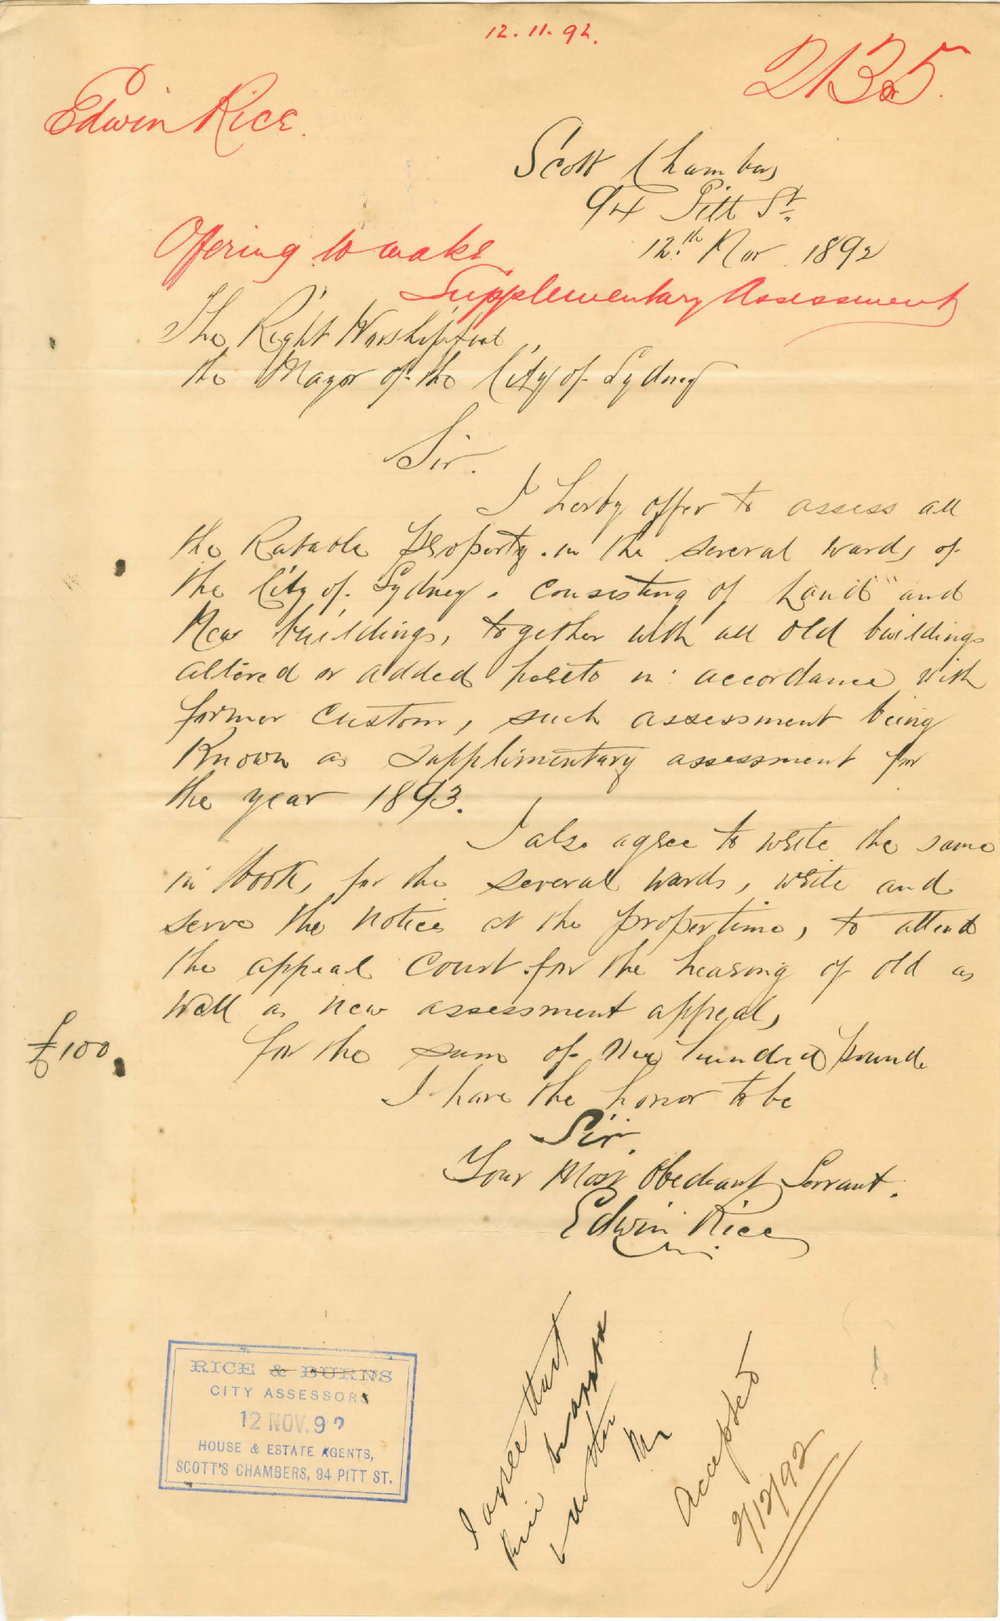 12.11.92.
2135.
Edwin Rice.
Scott Chambers
94 Pitt St.
12th Nov 1892
Offering to make
Supplementary Assessment
The Right Worshipful
the Mayor of the City of Sydney
Sir.
I herby offer to assess all
the Ratable Property in the several wards of
the City of Sydney. consisting of "Land" and
New buildings, together with all old buildings
altered or added hereto in accordance with
former custom, such assessment being
Known as Supplimentary assessment for
the year 1893.
I also agree to write the same
in Books for the several wards, write and
serve the notices at the properties, to attend
the appeal Court for the hearing of old as
Well as new assessment appeals
£100. for the sum of One hundred pounds
I have the honor to be
Sir.
Your Most Obediant Servant.
Edwin Rice
RICE & BURNS
CITY ASSESSORS
12 NOV. 92
HOUSE & ESTATE AGENTS,
SCOTT'S CHAMBERS, 94 PITT ST.
I agree that
Rice be
Accepted
2/12/92